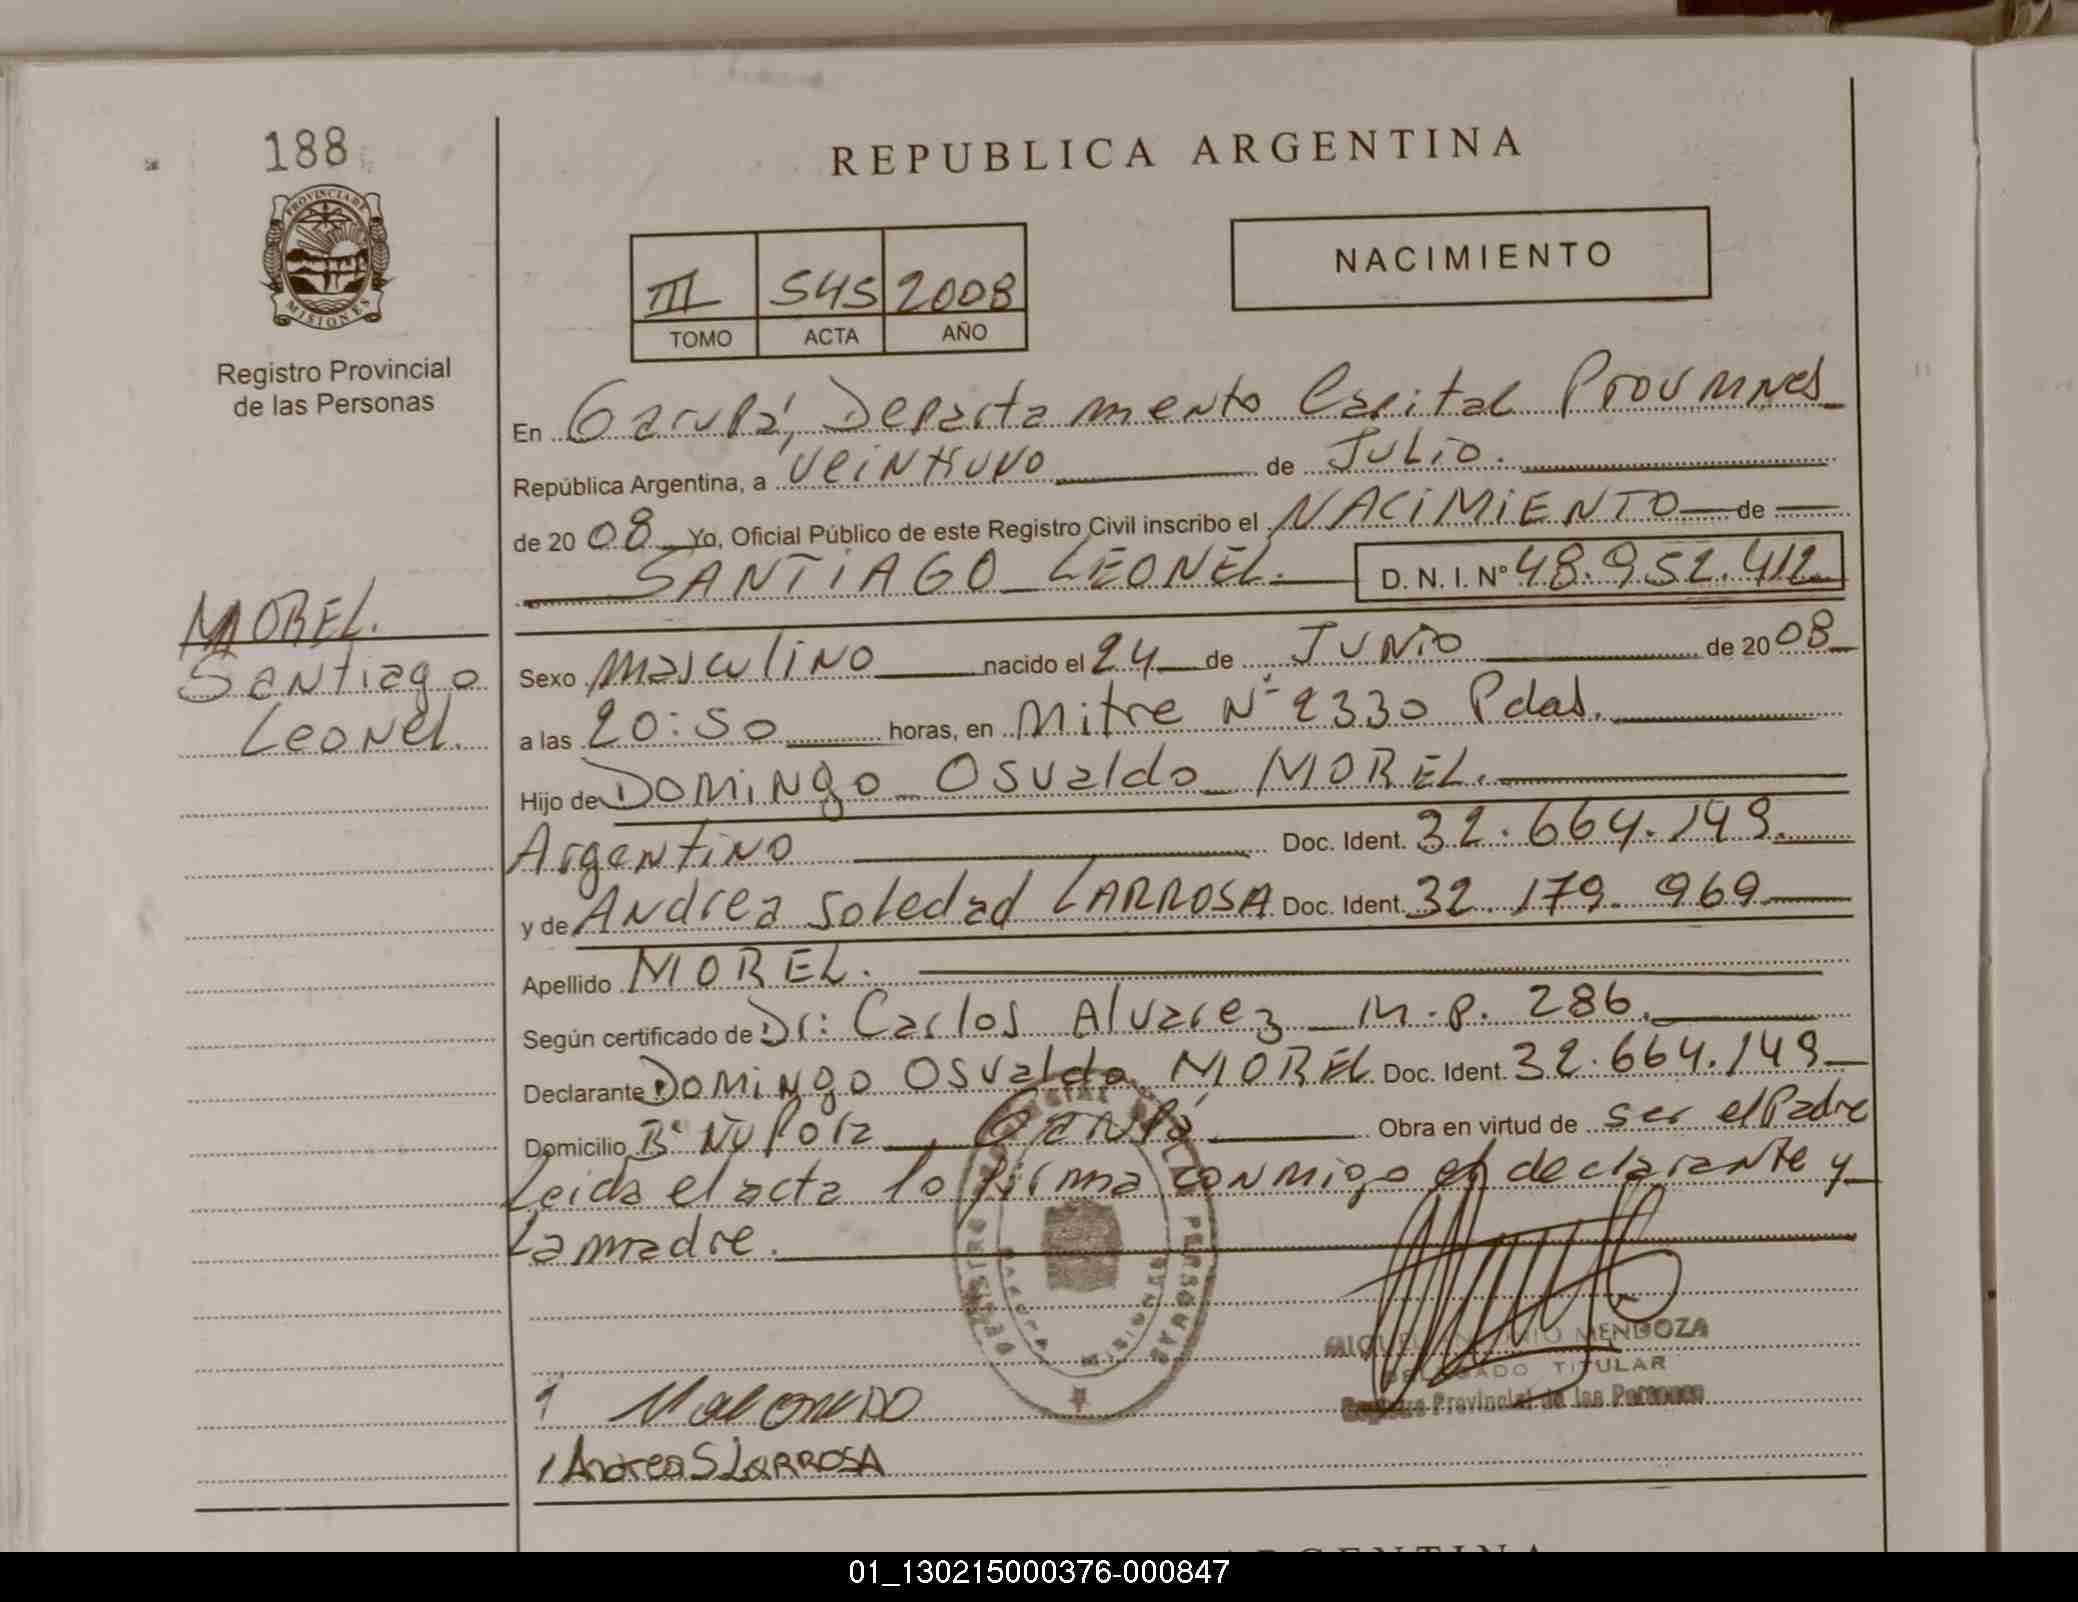 188
PROVINCIA DE
MISIONES
Registro Provincial
de las Personas
MOREL.
Santiago
Leonel.
REPUBLICA ARGENTINA
III 545 2008
TOMO ACTA AÑO
NACIMIENTO
En Garupá, Departamento Capital Prov Mnes
República Argentina, a veintiuno de Julio.
de 2008 Yo, Oficial Público de este Registro Civil inscribo el NACIMIENTO de
SANTIAGO LEONEL. D. N. I. Nº 48.952.412
Sexo masculino nacido el 24 de JUNIO de 2008
a las 20:50 horas, en Mitre Nº 2330 Pdas.
Hijo de Domingo Osvaldo MOREL.
Argentino Doc. Ident. 32.664.149.
y de Andrea Soledad LARROSA Doc. Ident. 32.179.969
Apellido MOREL.
Según certificado de Dr: Carlos Alvarez m.p. 286.
Declarante Domingo Osvaldo MOREL Doc. Ident. 32.664.149
Domicilio Bº Ñu Porá, Garupá Obra en virtud de ser el Padre
Leida el acta lo firma conmigo el declarante y
La madre.
MIGUEL ANTONIO MENDOZA
DELEGADO TITULAR
Registro Provincial de las Personas
Andrea S LARROSA
ARGENTINA
01_130215000376-000847